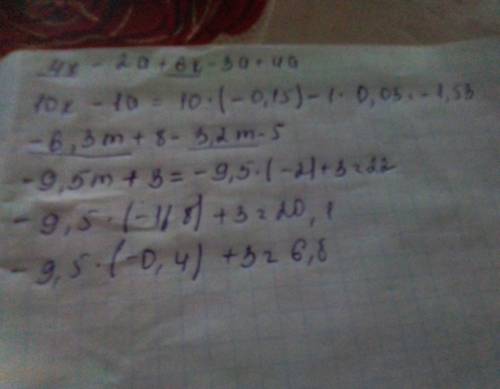 4x - 2a + 6x - 3a + 4a
10x - 1a = 10 · (-0,15) - 1 · 0,03 = -1,53
-6,3m + 8 - 3,2m - 5
-9,5m + 3 = -9,5 · (-2) + 3 = 22
-9,5 · (-1,8) + 3 = 20,1
-9,5 · (-0,4) + 3 = 6,8